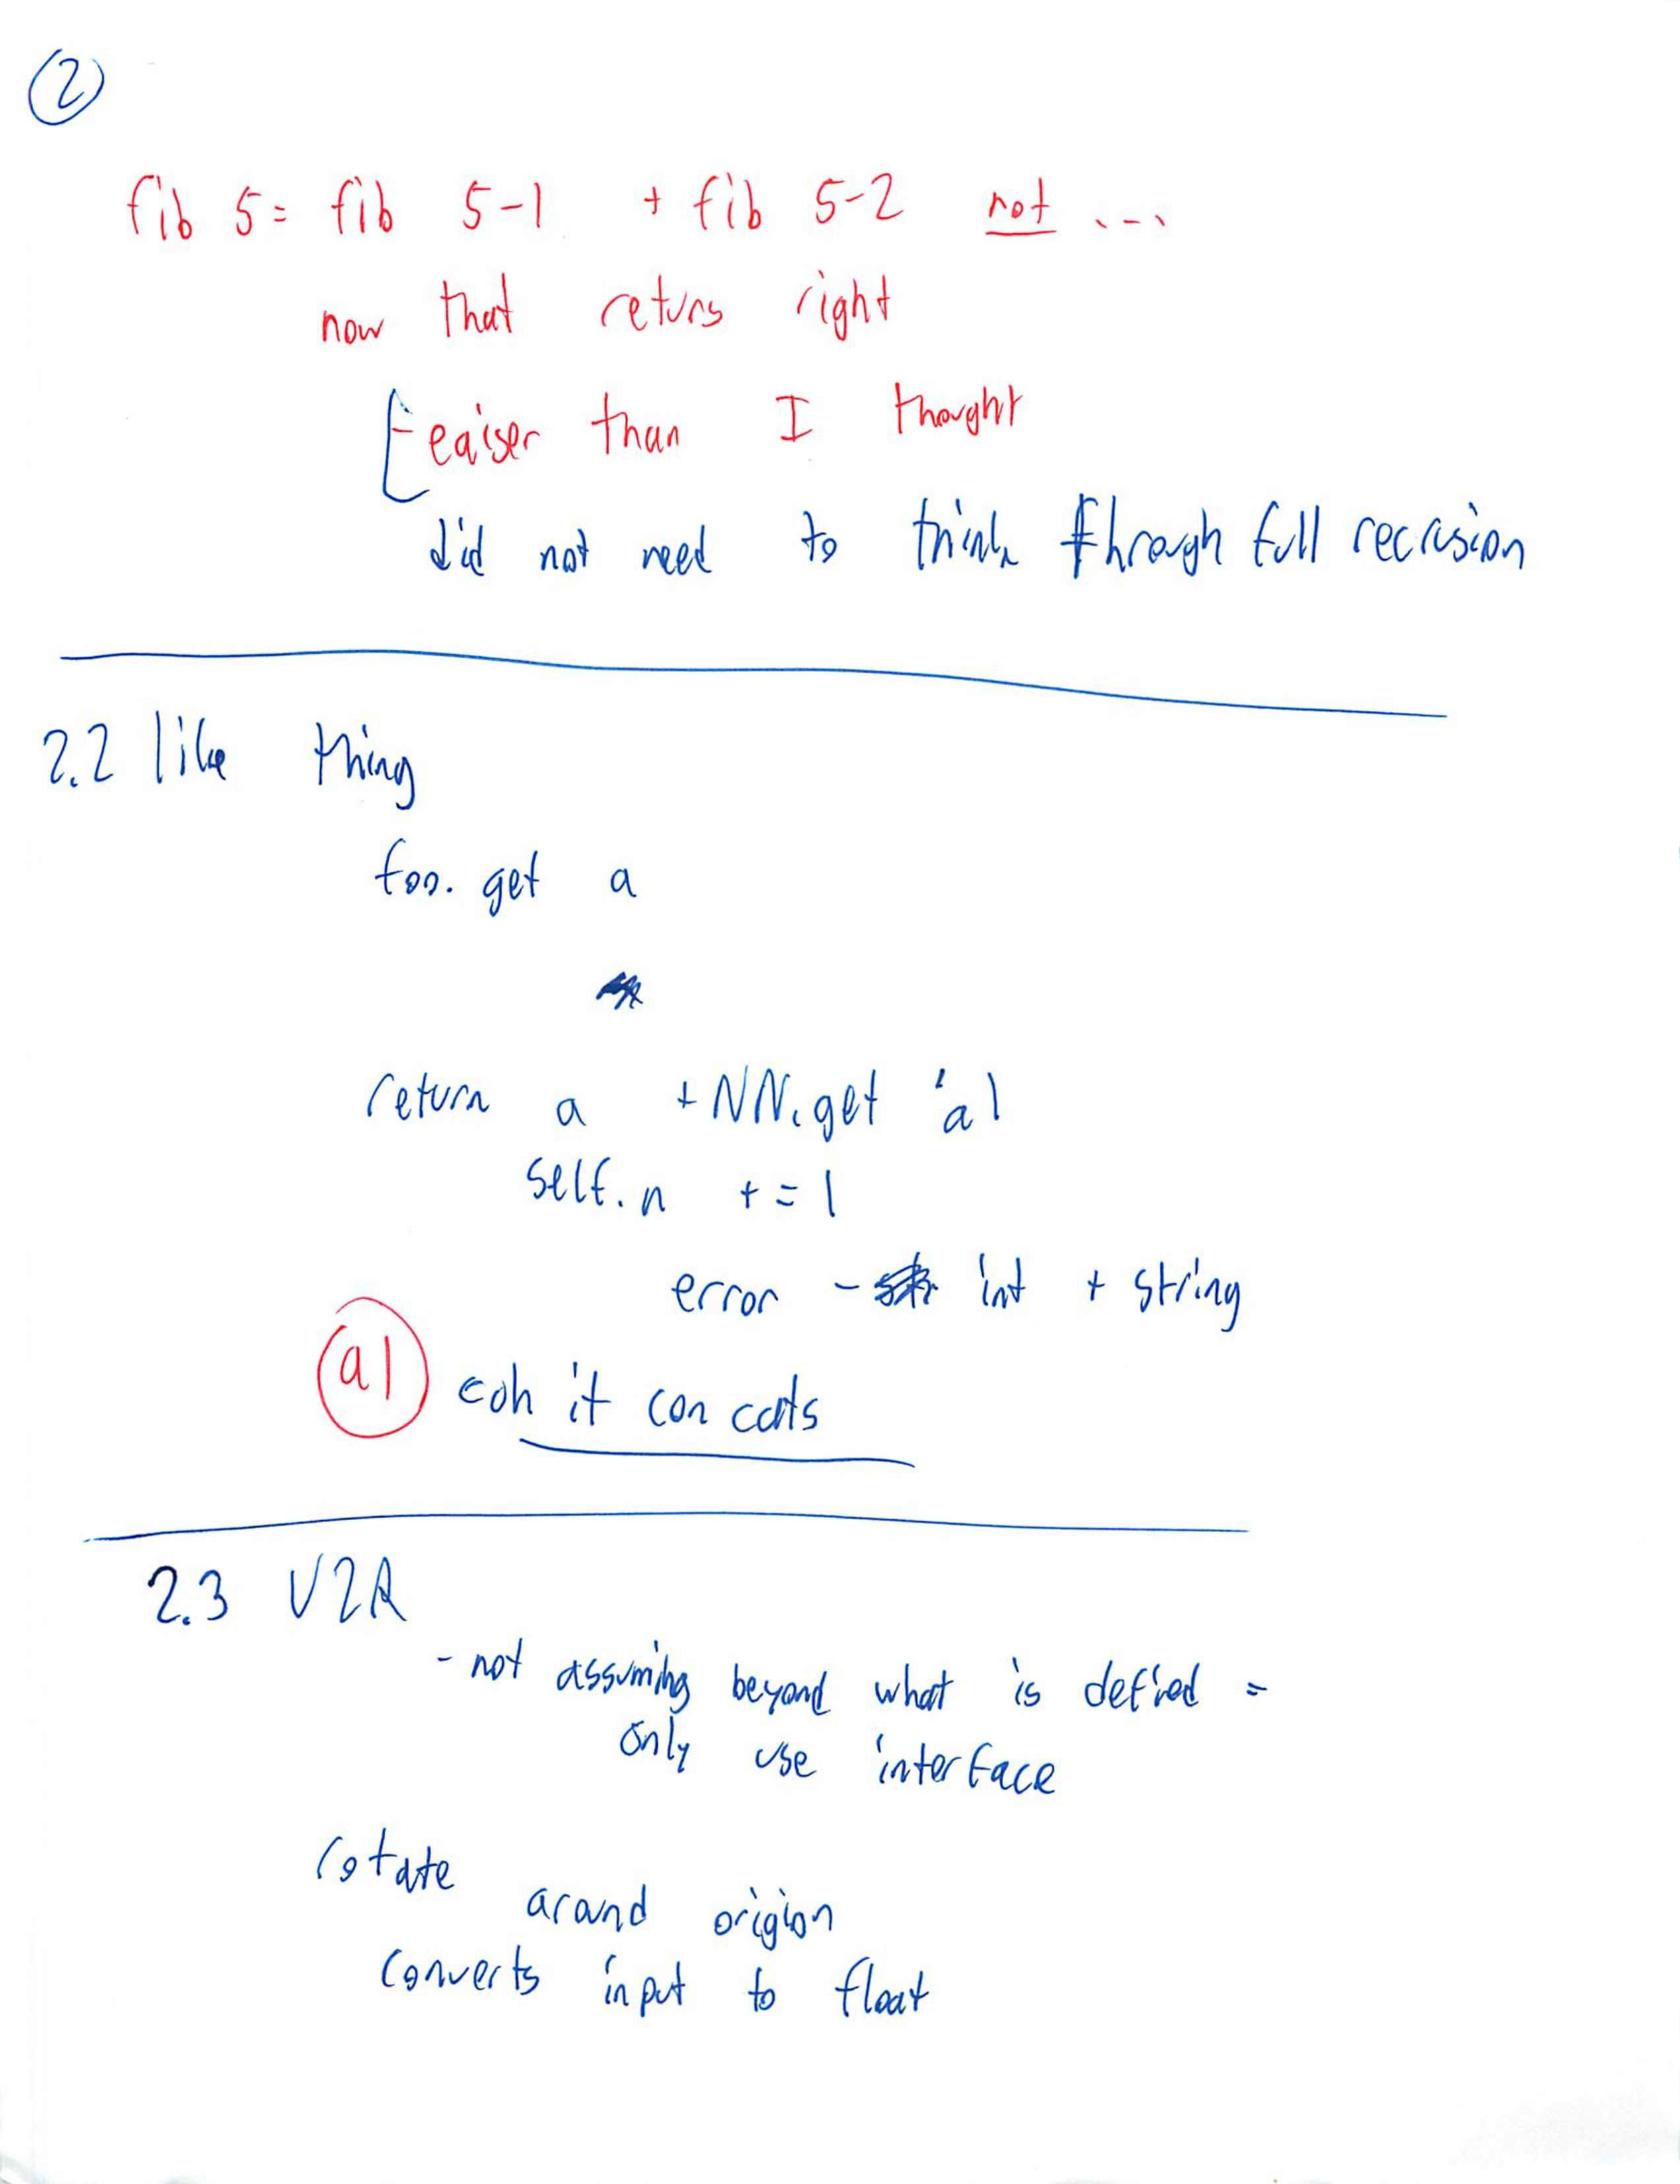 2
fib 5 = fib 5-1 + fib 5-2 not ...
now that returs right
eaiser than I thought
did not need to think through full recrusion
2.2 like thing
foo. get a
return a + NN.get 'a1
self.n += 1
error - int + string
a1 coh it con cats
2.3 V2R
- not assuming beyond what is defined =
only use interface
rotate around origion
converts input to float